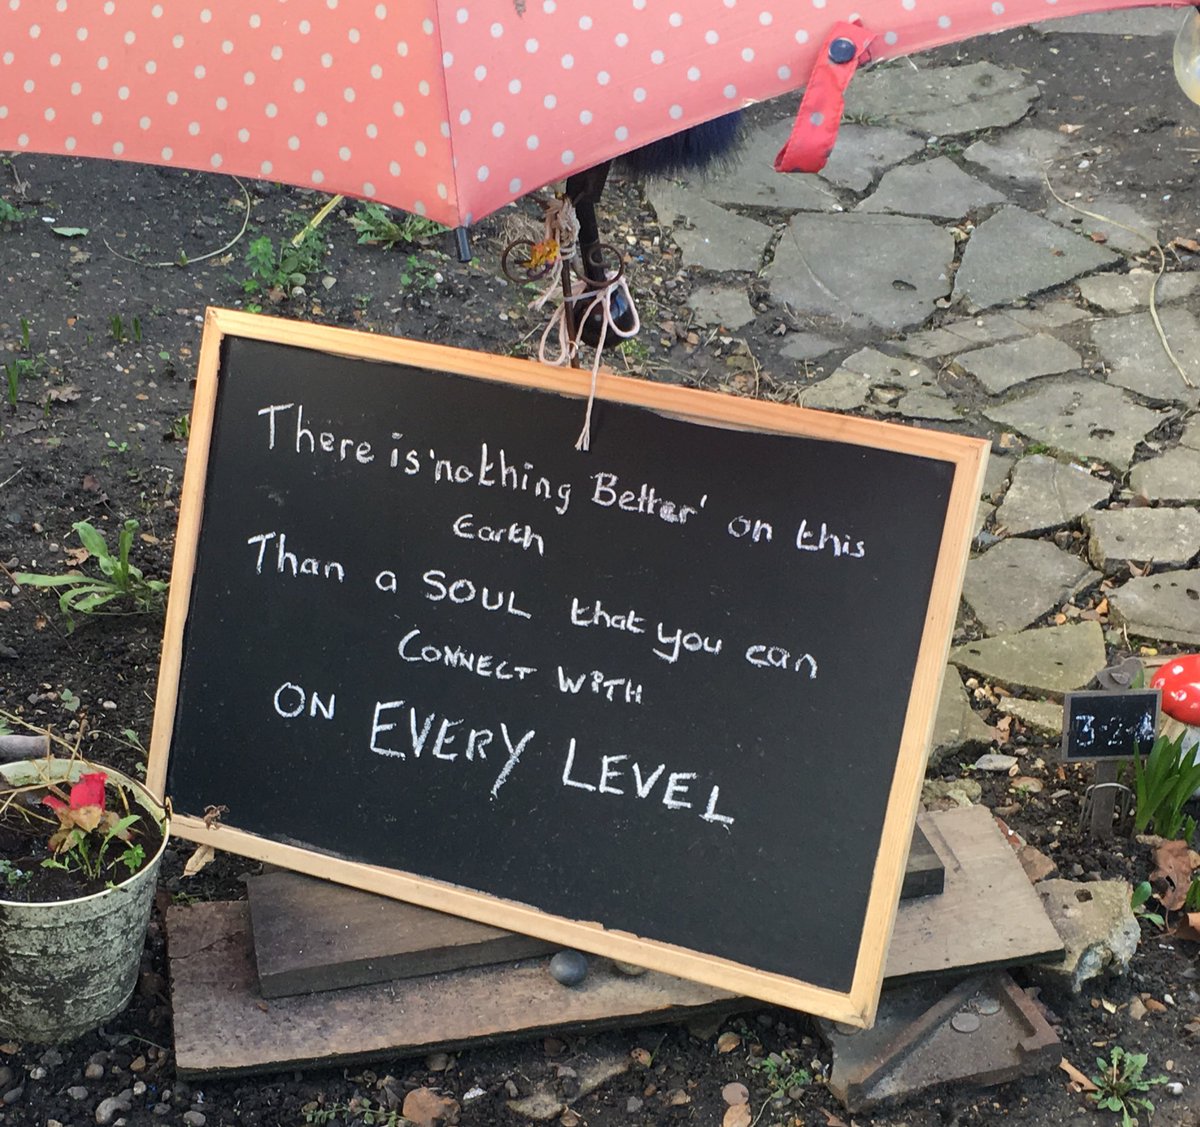 There is 'nothing Better' on this
Earth
Than a SOUL that you can
CONNECT WiTH
ON EVERY LEVEL